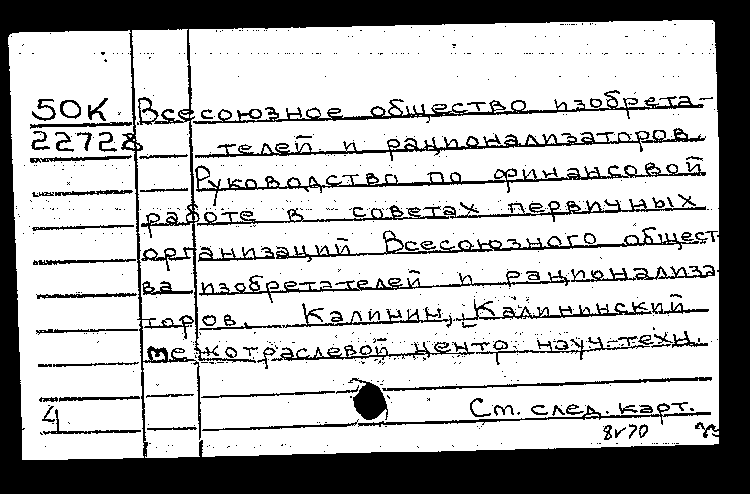 50К Всесоюзное общество изобрета-
22728 телей и рационализаторов.
Руководство по финансовой
работе в советах первичных
организаций Всесоюзного общест-
ва изобретателей и рационализа-
торов. Калинин, Калининский
межотраслевой центр науч.-техн.
4 См. след. карт.
8г70